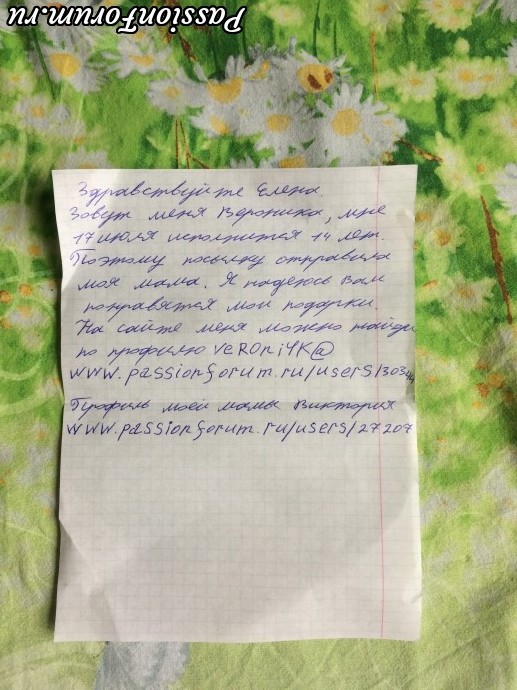 PassionForum.ru
Здравствуйте Елена
Зовут меня Вероника, мне
17 июля исполнится 14 лет.
Поэтому посылку отправила
моя мама. Я надеюсь Вам
понравятся мои подарки
На сайте меня можно найди
по профилю veR0ni4K@
www.passionforum.ru/users/
Профиль моей мамы Виктория
www.passionforum.ru/users/27207